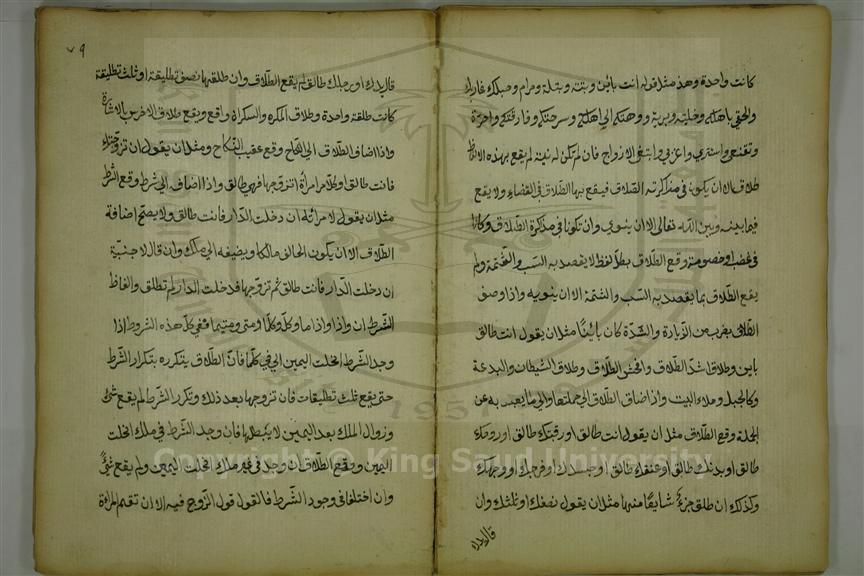 كانت واحدة وهذ مثل قوله انت باين وبتة وبتلة وحرام وحبلك على غاربك
والحقي باهلك وخلية وبرية ووهبتك الي اهلك وسرحتك وفارقتك وانت حرة
وتقنعي واستتري واغربي وابتغي الازواج فان لم تكن له نية لم يقع بهذه الالفاظ
طلاق الا ان يكونا في مذاكرته الطلاق فيقع بها الطلاق في القضاء ولا يقع
فيما بينه وبين الله تعالى الا ان ينوي وان لم يكونا في مذاكرة الطلاق وكانا
في غضب او خصومة وقع الطلاق بكل لفظ لا يقصد به السب والشتمة ولم
يقع الطلاق بما يقصد به السب والشتمة الا ان ينويه واذا وصف
الطلاق بضرب من الزيادة والشدة كان بائنا مثل ان يقول انت طالق
باين وطلاقا شد الطلاق وافحش الطلاق وطلاق الشيطان والبدعة
وكالجبل وملاء البيت واذا ضاف الطلاق الي جملتها والي ما يعبر به عن
الجملة وقع الطلاق مثل ان يقول انت طالق او رقبتك طالق او روحك
طالق او بدنك طالق او عنقك طالق او جسدك او فرجك او وجهك
وكذلك ان طلق جزء شايعا منها مثل ان يقول نصفك او ثلثك وان
قال يدك
٧٩
قال يدك او رجلك طالق لم يقع الطلاق وان طلقها نصف تطليقة او ثلث تطليقة
كانت طلقة واحدة وطلاق المكره والسكران واقع ويقع طلاق الاخرس بالاشارة
واذا اضاف الطلاق الي النكاح وقع عقيب النكاح ومثل ان يقول ان تزوجتك
فانت طالق او كل امرأة اتزوجها فهي طالق واذا اضافه الي شرط وقع الشرط
مثل ان يقول لامرأته ان دخلت الدار فانت طالق ولا يصح اضافة
الطلاق الا ان يكون الحالف مالكا ويضيفه الي ملك وان قال لاجنبية
ان دخلت الدار فانت طالق ثم تزوجها فدخلت الدار لم تطلق والفاظ
الشرط ان واذا واذا ما وكل وكلما ومتى ومتيما ففي كل هذه الشروط اذا
وجد الشرط انحلت اليمين الي في كلما فان الطلاق يتكرر بتكرار الشرط
حتى يقع ثلث تطليقات فان تزوجها بعد ذلك وتكرر الشرط لم يقع شئ
وزوال الملك بعد اليمين لا يبطلها فان وجد الشرط في ملك انحلت
اليمين ويقع الطلاق وان وجد في غير ملك انحلت اليمين ولم يقع شئ
وان اختلفا في وجود الشرط فالقول قول الزوج فيه الا ان تقيم المراة
1957
© King Saud University